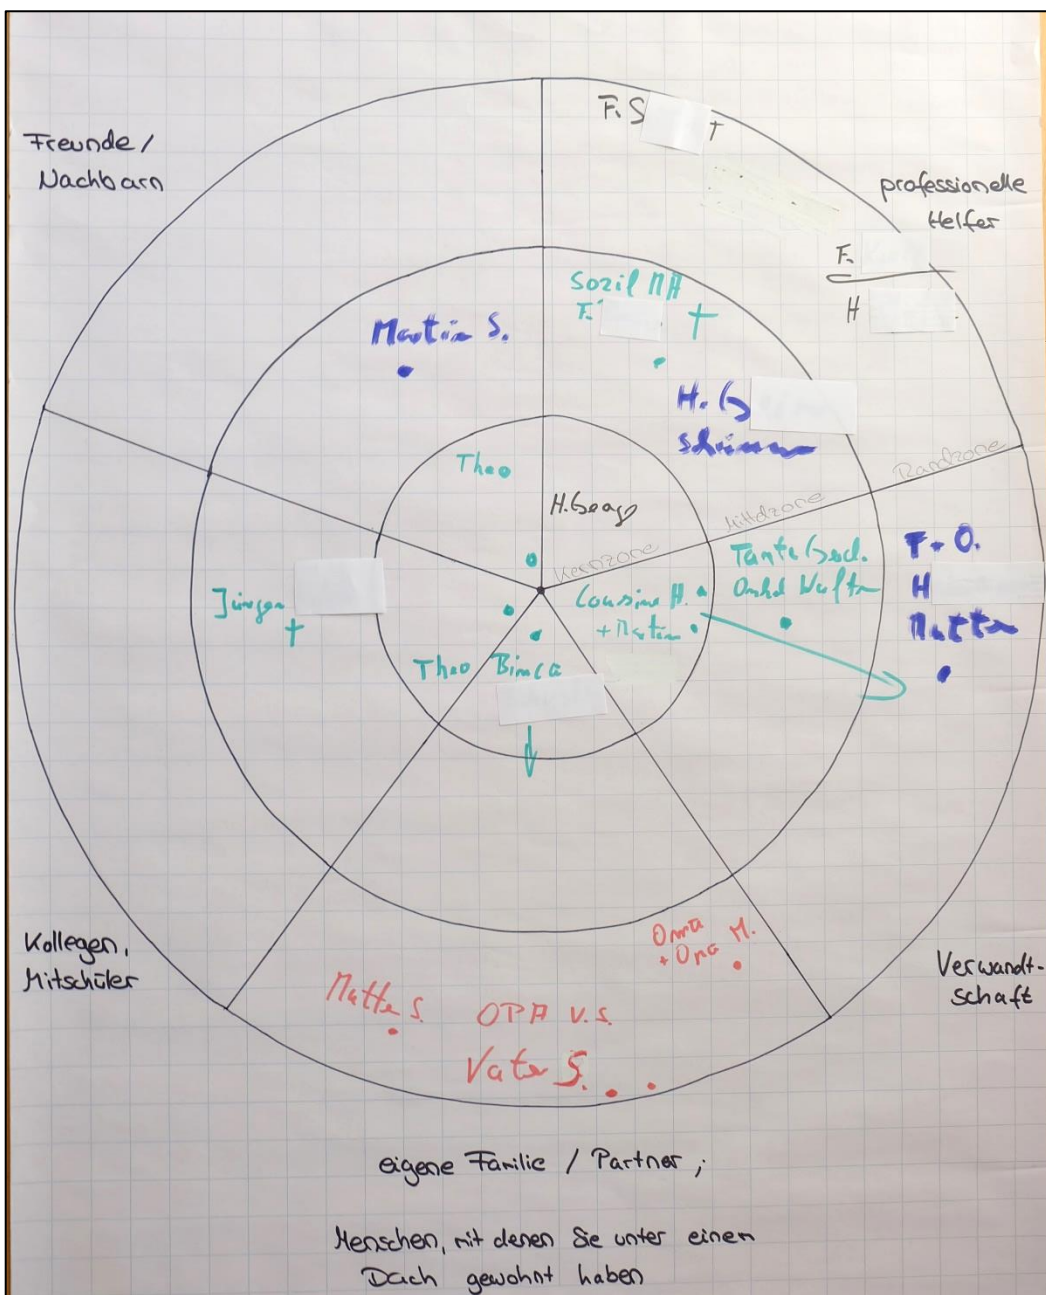 Freunde /
Nachbarn
F. S
professionelle
Helfer
F.
H
Sozil MA
F.
Martin S.
H. G
Theo
H. Georg
Kernzone
Mittelzone
Randzone
Tante God.
Onkel Walter
Cousine H.
+ Martin
F. O.
H
Mutter
Jürgen
Theo
Bianca
Oma
+ Opa M.
Mutter S.
OPA V.S.
Vater S.
Kollegen,
Mitschüler
Verwandt-
schaft
eigene Familie / Partner ;
Menschen, mit denen Sie unter einem
Dach gewohnt haben